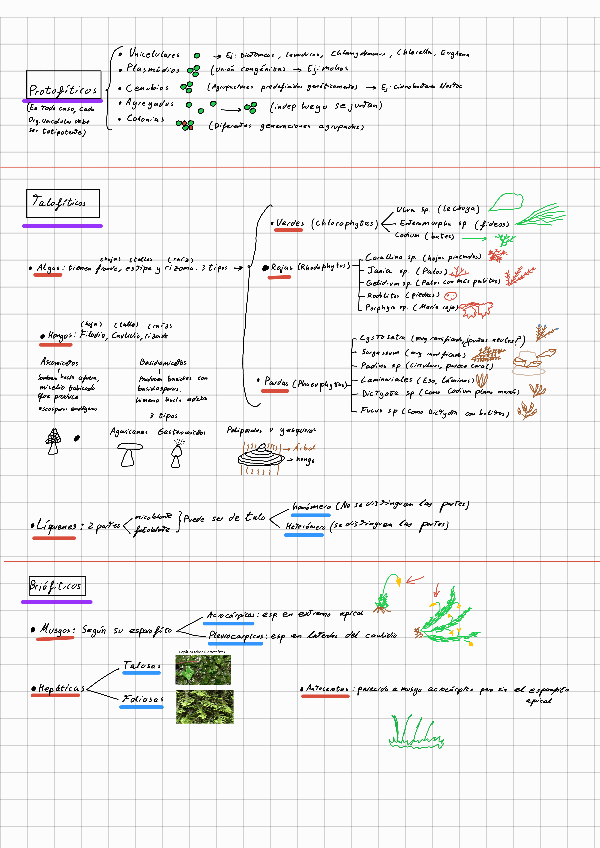 Protofíticos
(En todo caso, cada
Org. unicelular debe
ser totipotente)
• Unicelulares → Ej: Diatomeas, Chlamydomonas, Chlorella, Euglena
• Plasmodios (Unión congéneres → Ej: mohos
• Cenobios (Agrupaciones predefinidas genéticamente) → Ej: cianobacteria Nostoc
• Agregados → (indep luego se juntan)
• Colonias (Diferentes generaciones agrupadas)
Talofíticos
(hojas) (tallos) (raíz)
• Algas: tienen fronde, estipe y rizoma. 3 tipos →
• Verdes (Chlorophytas)
Ulva sp. (lechuga)
Enteromorpha sp (fideos)
Codium (bates)
• Rojas (Rhodophytas)
Corallina sp. (hojas pinchadas)
Jania sp. (Palos)
Gelidium sp. (Palos con más palitos)
Rodolitos (piedras)
Porphyra sp. (María roja)
• Pardas (Phaeophytas)
Cystoseira (muy ramificada,
Sargassum (muy ramificado)
Padina sp (circulares, parece coral)
Laminariales (Eso, láminas)
Dictyota sp (como Codium plano marrón)
Fucus sp (como Dictyota con bolitas)
(hojas) (tallos) (raíz)
• Hongos: Filodio, Caulidio, rizoide
Ascomicetos
Basidiomicetos
Producen basidios con
basidiosporas,
3 tipos
Agaricanos Gasteromicetos
→ árbol
→ hongo
• Líquenes: 2 partes
micobionte
fotobionte
Puede ser de talo
homómero (No se distinguen las partes)
Heterómero (se distinguen las partes)
Briofíticos
• Musgos: Según su esporofito
Acrocárpicos: esp en extremo apical
Pleurocárpicos: esp en laterales del caulidio
• Hepáticas
Talosas
Foliosas
• Antocerotas: parecido a musgo acrocárpico pero sin el esporofito
apical